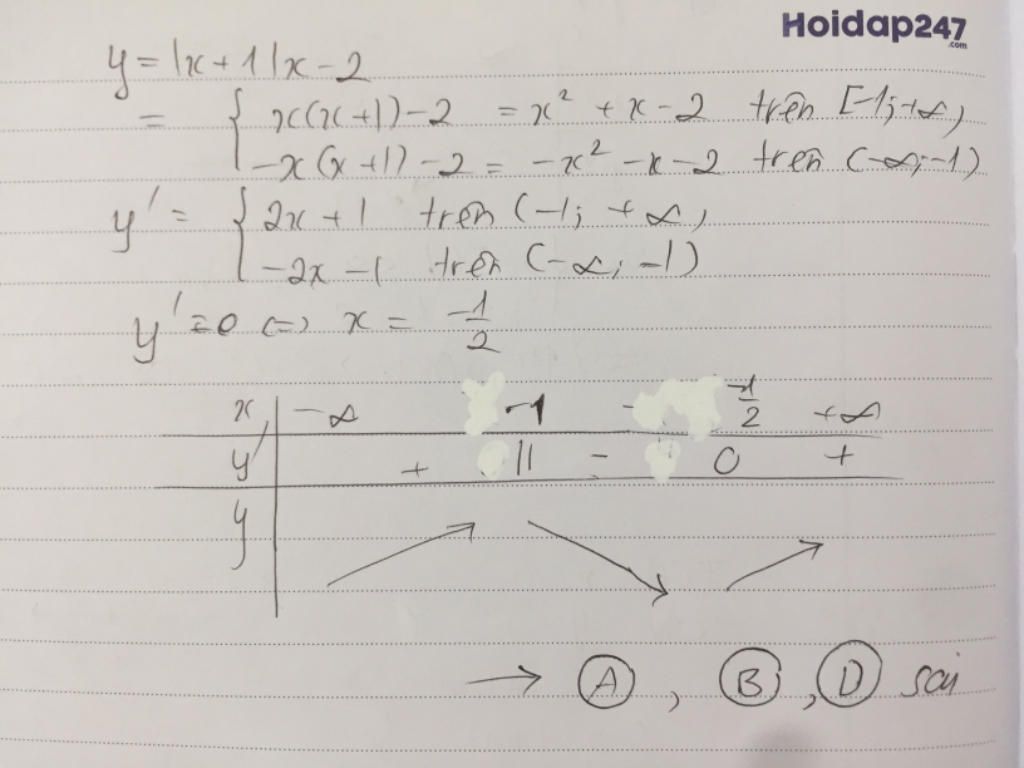 Hoidap247
.com
y = |x + 1|x - 2
= { x(x+1) - 2 = x² + x - 2 trên [-1; +∞)
-x(x+1) - 2 = -x² - x - 2 trên (-∞; -1)
y' = { 2x + 1 trên (-1; +∞)
-2x - 1 trên (-∞; -1)
y' = 0 (=) x = -1/2
x -∞ -1 -1/2 +∞
y' + || - 0 +
y
→ A, B, D sai